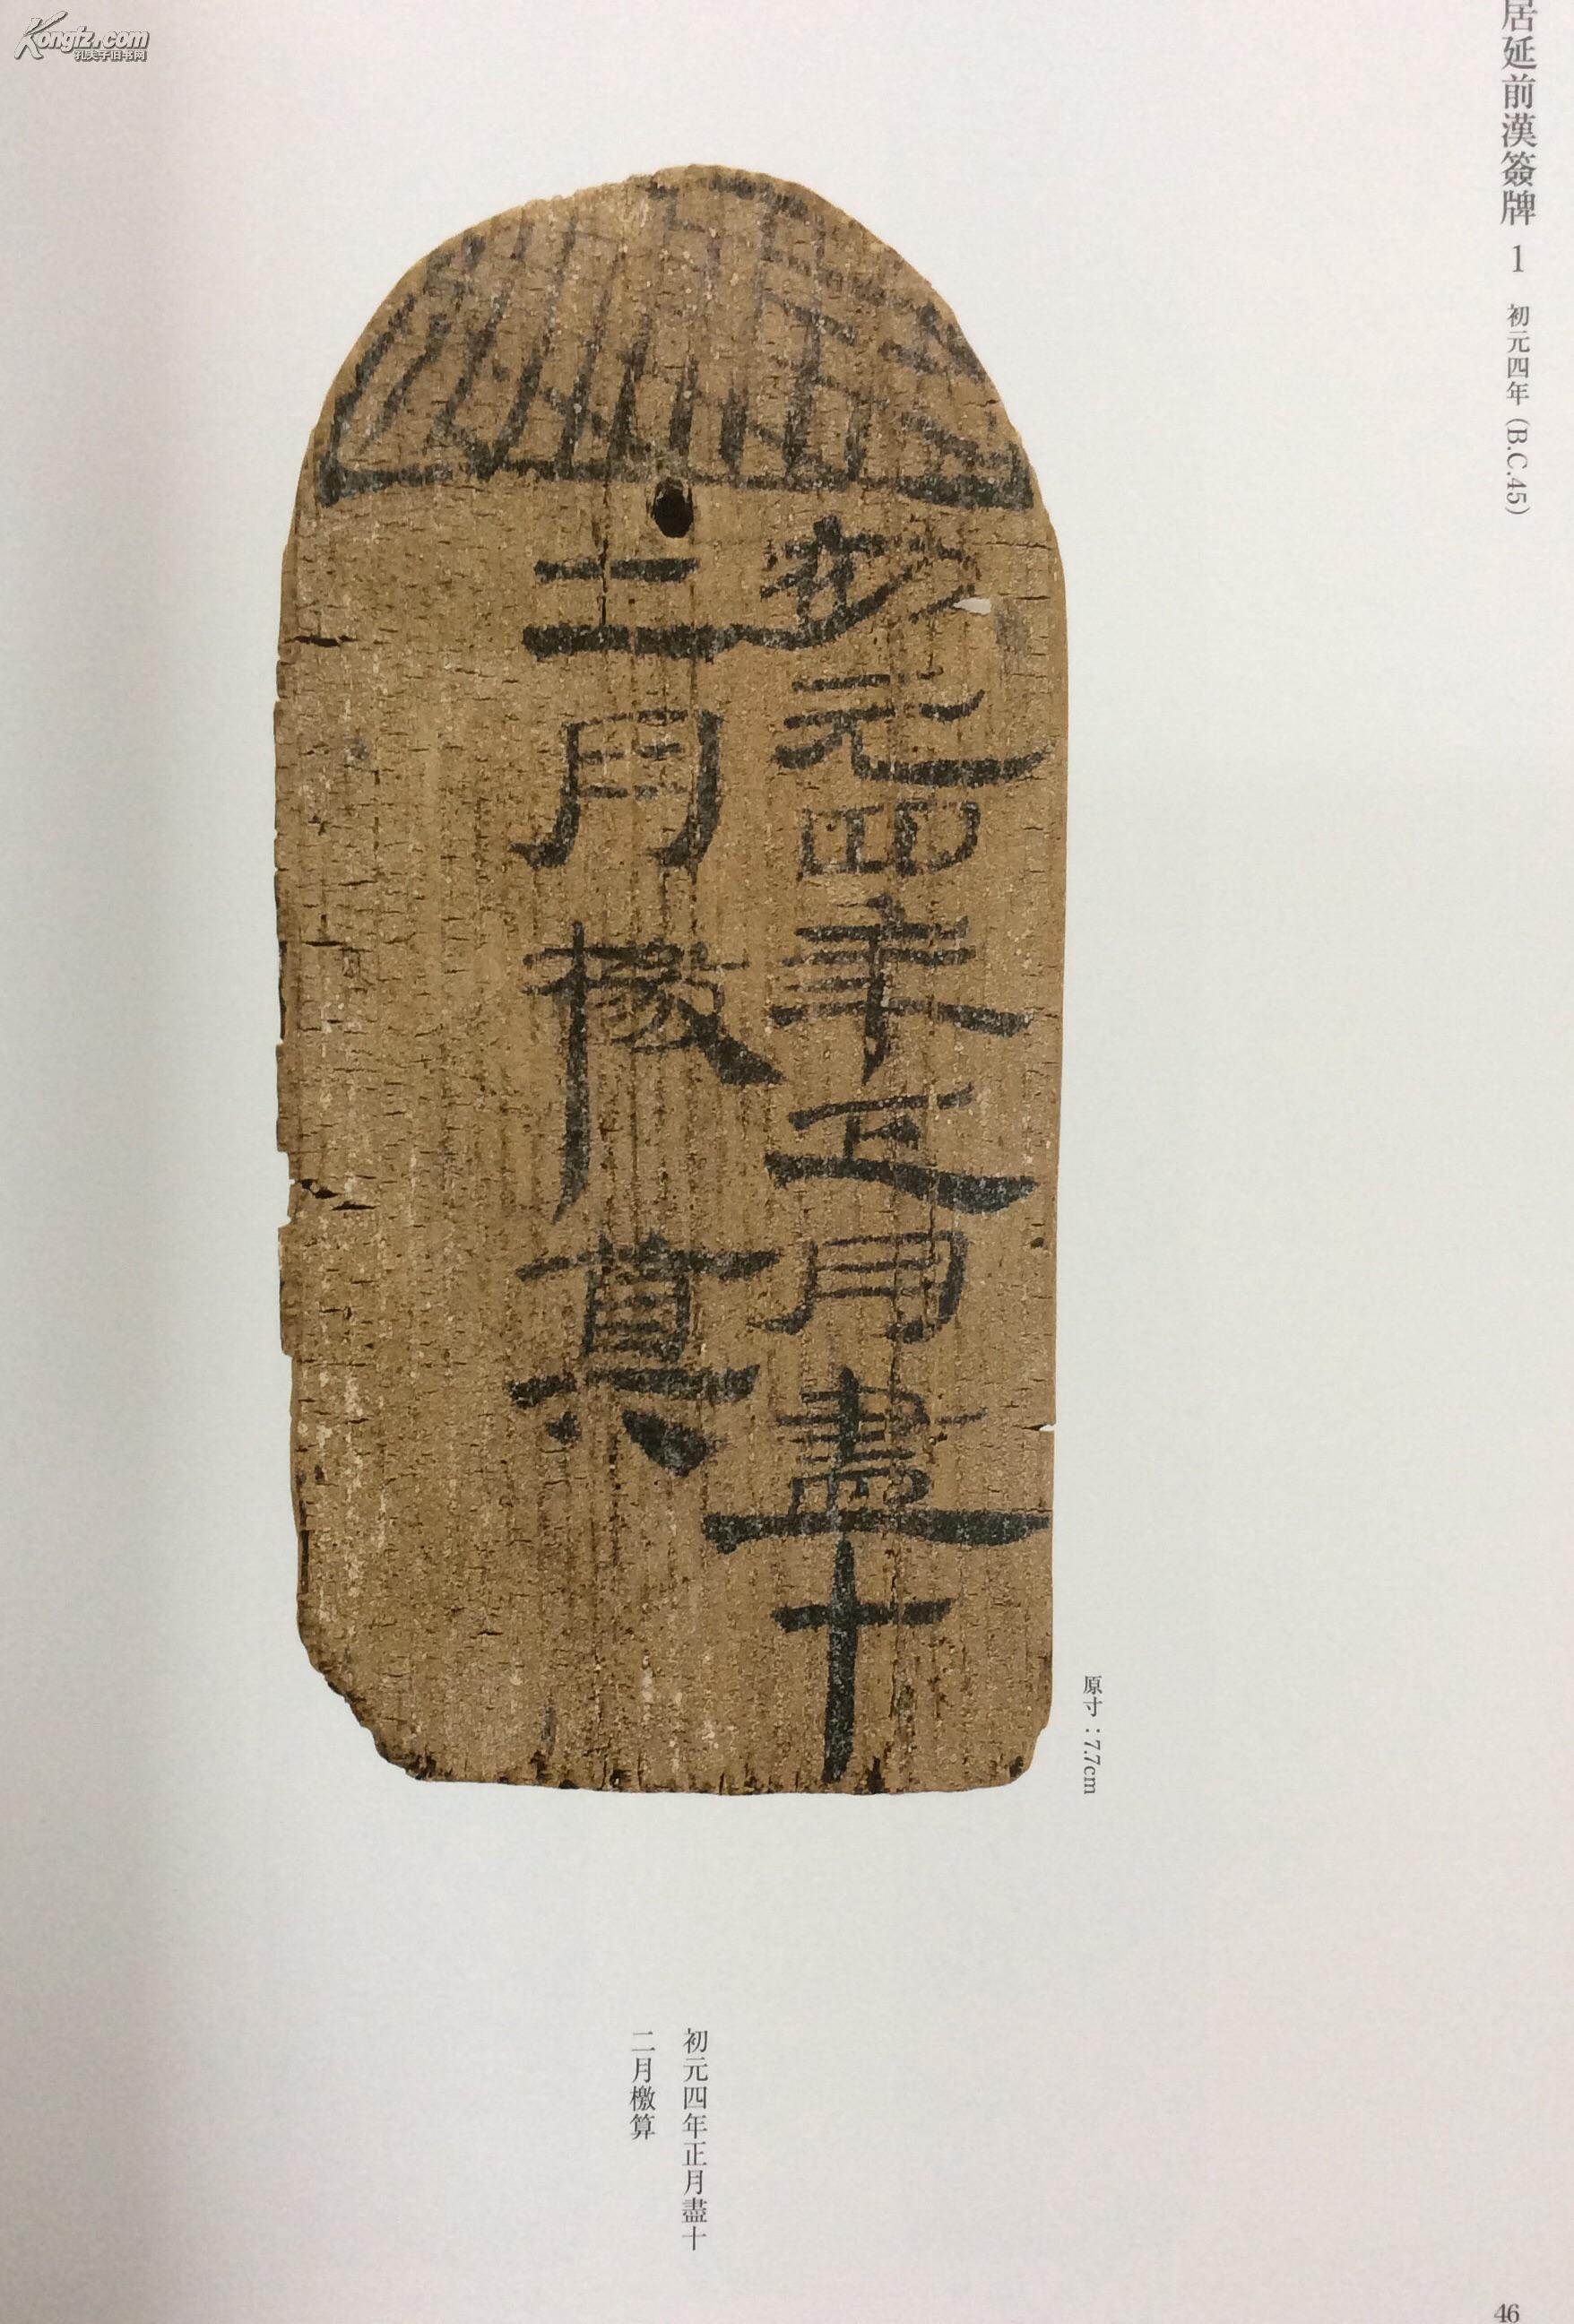 Kongfz.com
孔夫子旧书网
居延前漢簽牌 1 初元四年(B.C.45)
初元四年正月盡十
二月檄算
原寸：7.7cm
初元四年正月盡十
二月檄算
46